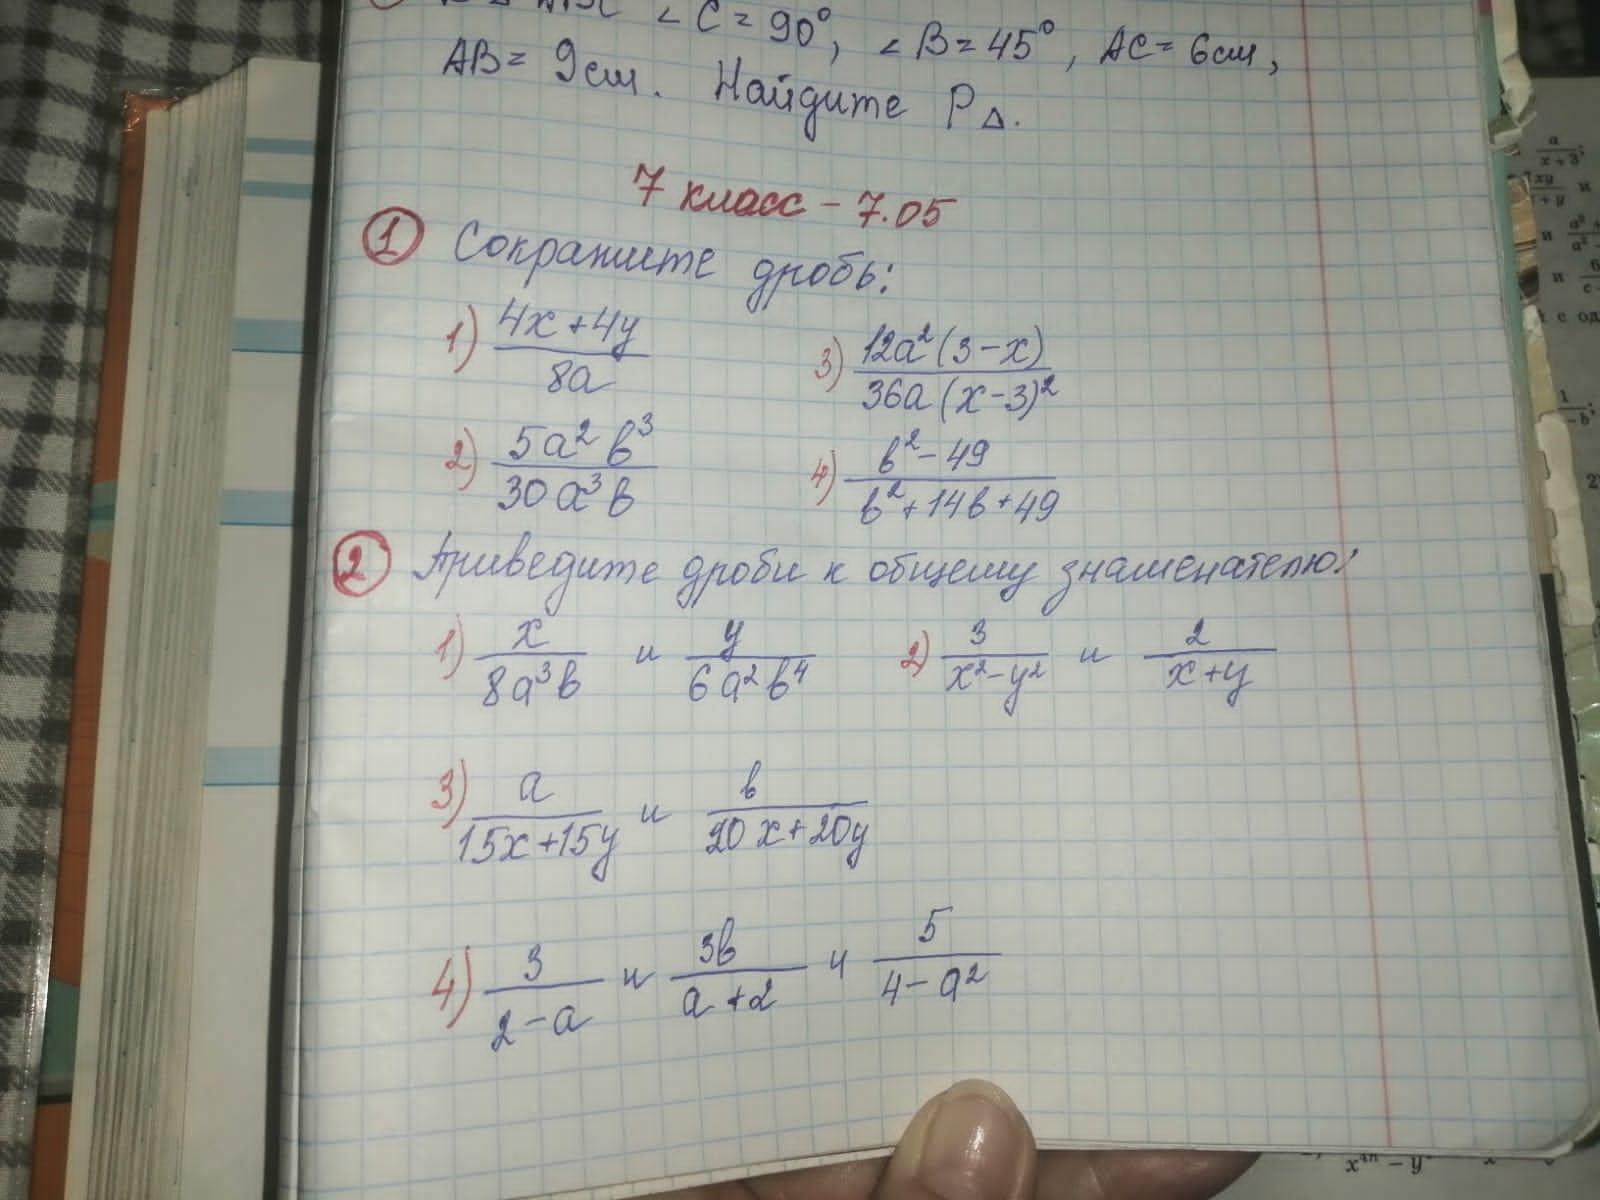 В △ ABC ∠C = 90°, ∠B = 45°, AC = 6см,
AB = 9см. Найдите P△.
7 класс - 7.05
1 Сократите дробь:
1) (4x+4y)/(8a) 3) (12a²(3-x))/(36a(x-3)²)
2) (5a²b³)/(30a³b) 4) (b²-49)/(b²+14b+49)
2 Приведите дроби к общему знаменателю:
1) x/(8a³b) и y/(6a²b⁴) 2) 3/(x²-y²) и 2/(x+y)
3) a/(15x+15y) и b/(20x+20y)
4) 3/(2-a) и 3b/(a+2) и 5/(4-a²)